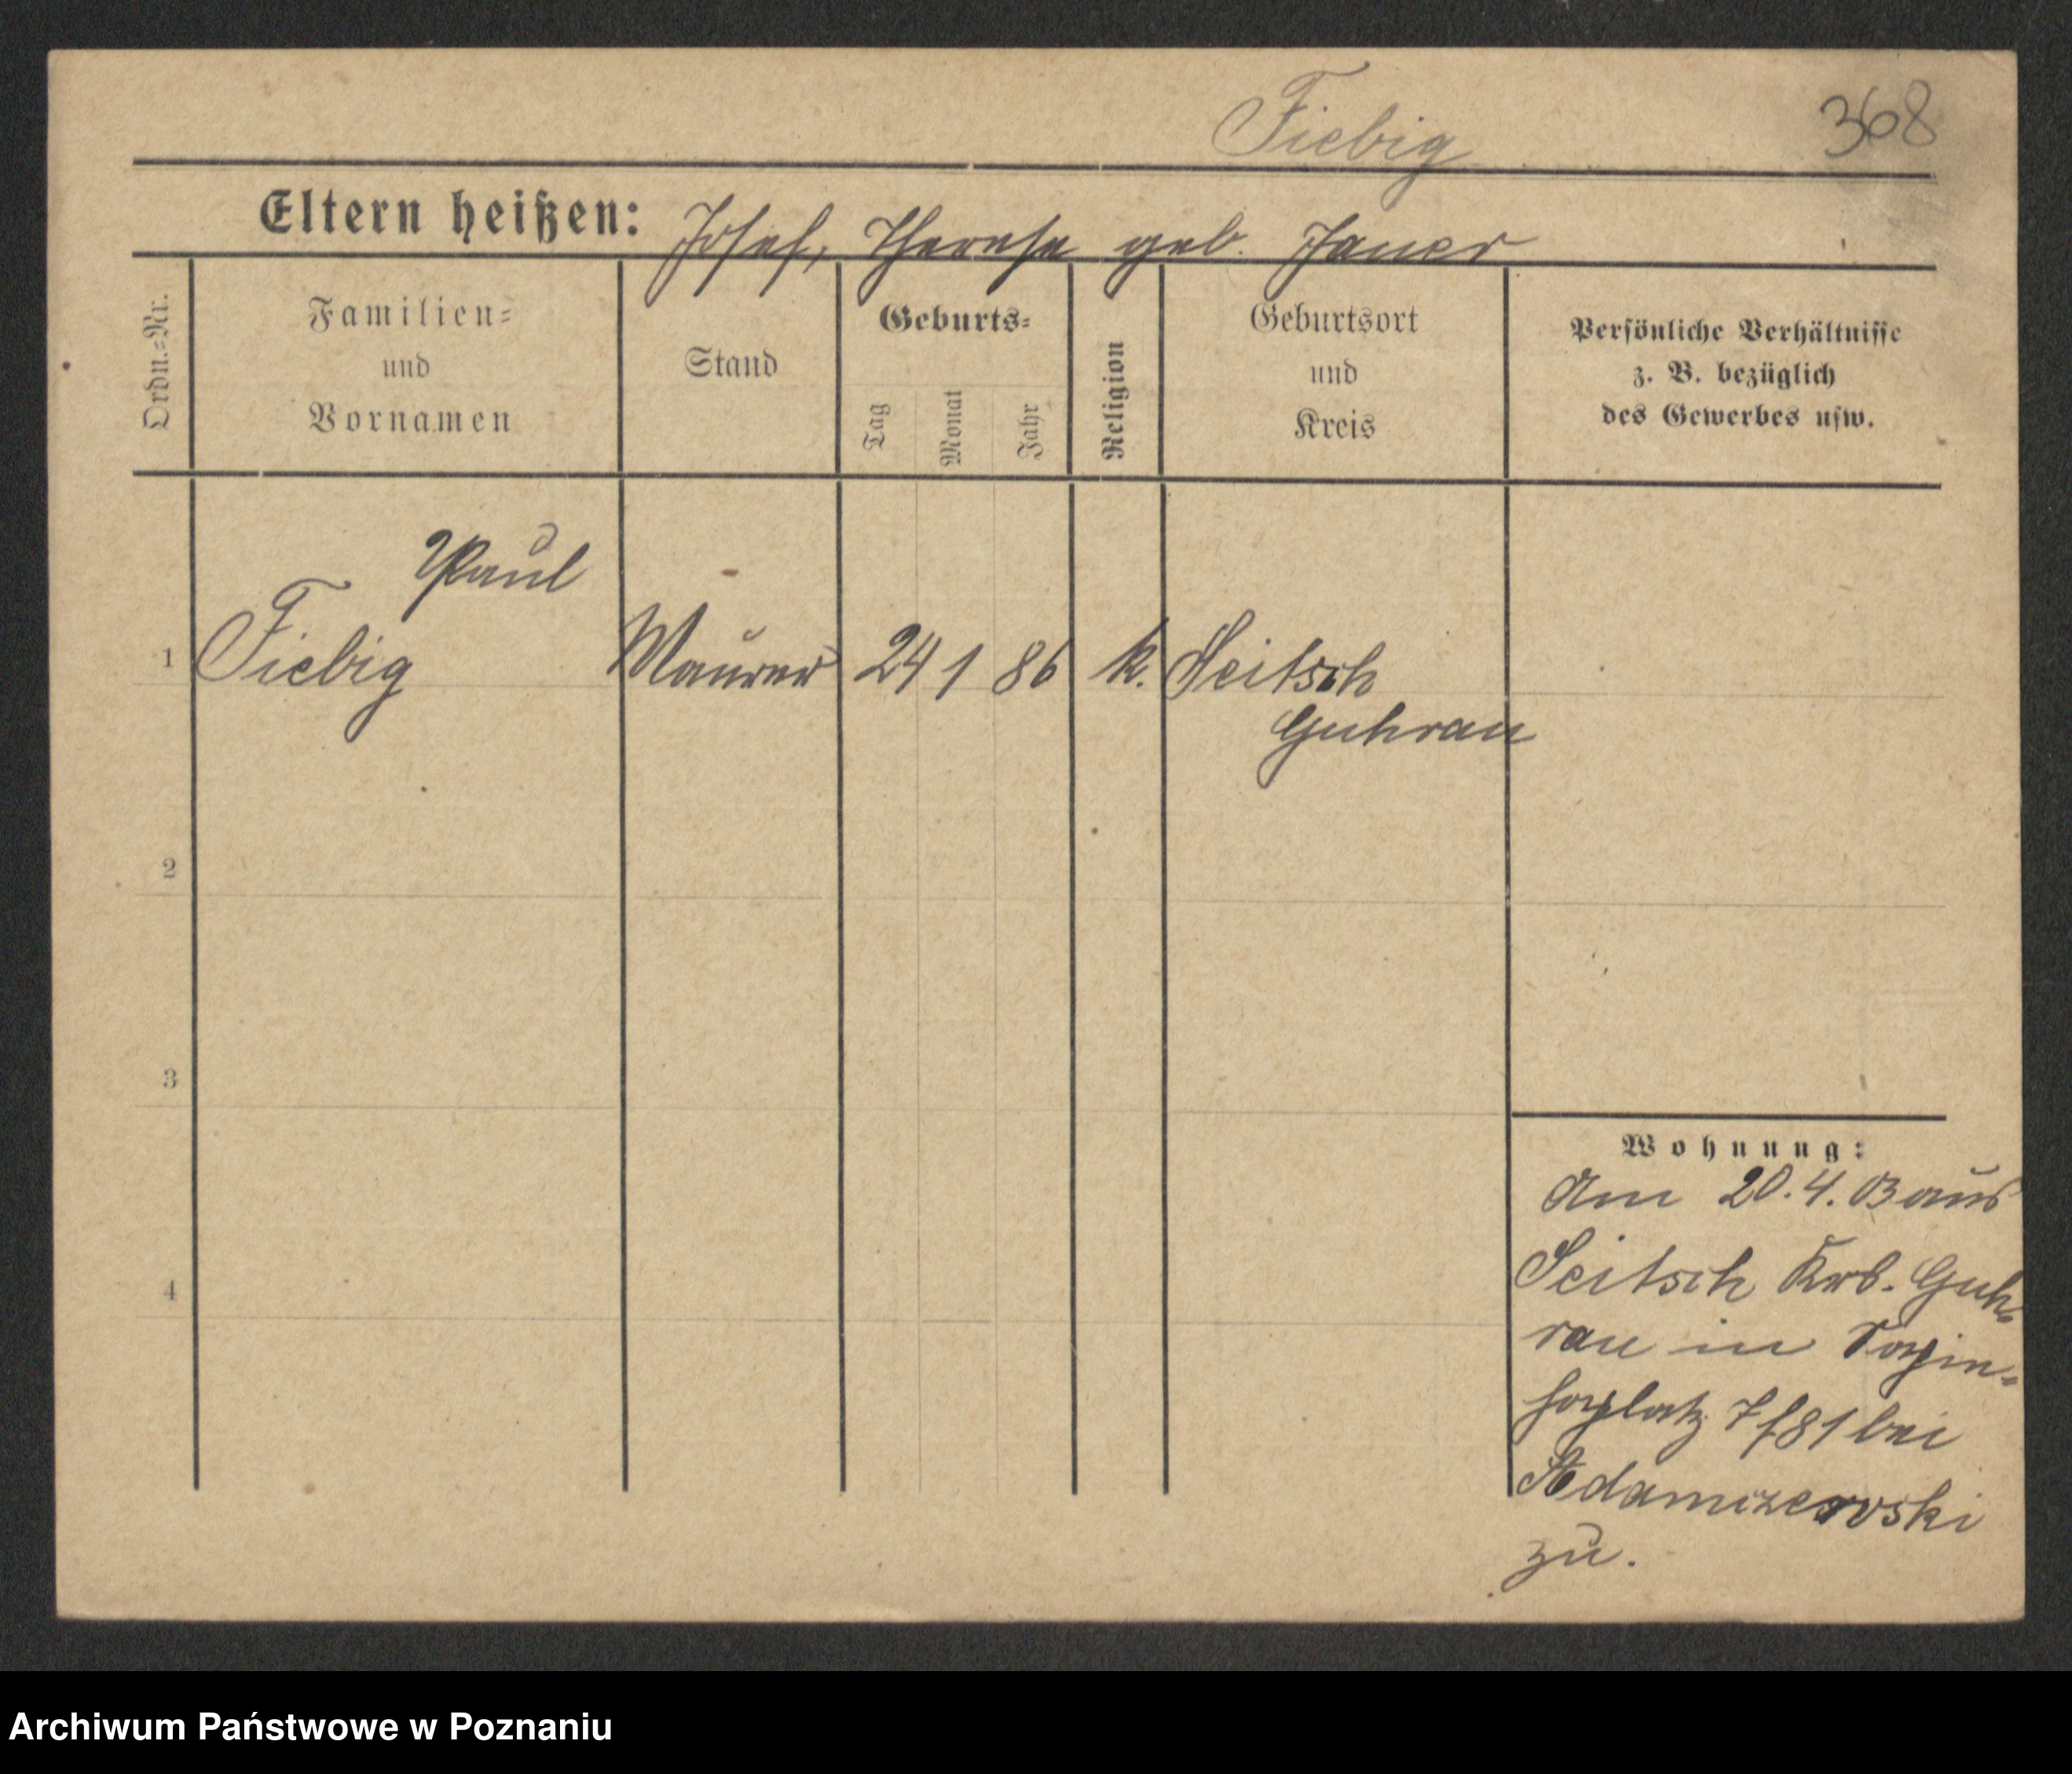 Fiebig 368
Eltern heißen: Josef, Therese geb. Janer
Ordn.-Nr.
Familien-
und
Vornamen
Stand
Geburts-
Tag
Monat
Jahr
Religion
Geburtsort
und
Kreis
Persönliche Verhältnisse
z. B. bezüglich
des Gewerbes usw.
Paul
1 Fiebig Maurer 24 1 86 k. Seitsch
Guhrau
2
3
4
Wohnung:
Am 20.4.03 aus
Seitsch Krb. Guh-
rau in
7/81 bei
zu.
Archiwum Państwowe w Poznaniu